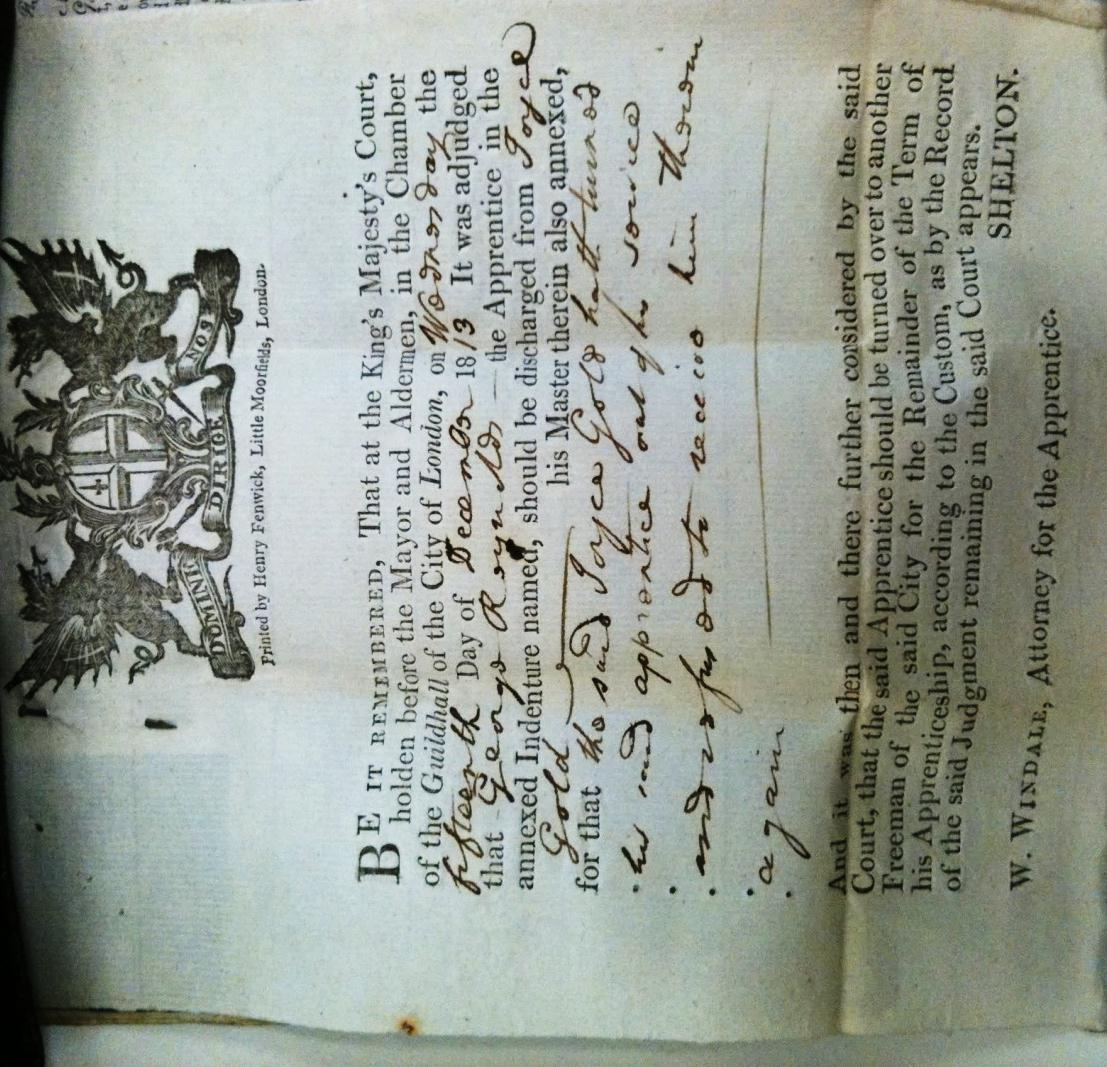 DOMINE DIRIGE NOS
Printed by Henry Fenwick, Little Moorfields, London.
BE IT REMEMBERED, That at the King's Majesty's Court,
holden before the Mayor and Aldermen, in the Chamber
of the Guildhall of the City of London, on Wednesday the
fifteenth Day of December 1813 It was adjudged
that George Reynolds the Apprentice in the
annexed Indenture named, should be discharged from Joyce
Gold his Master therein also annexed,
for that the said Joyce Gold hath turned
his said apprentice out of his service
and refused to receive him therein
again
And it was then and there further considered by the said
Court, that the said Apprentice should be turned over to another
Freeman of the said City for the Remainder of the Term of
his Apprenticeship, according to the Custom, as by the Record
of the said Judgment remaining in the said Court appears.
SHELTON.
W. WINDALE, Attorney for the Apprentice.